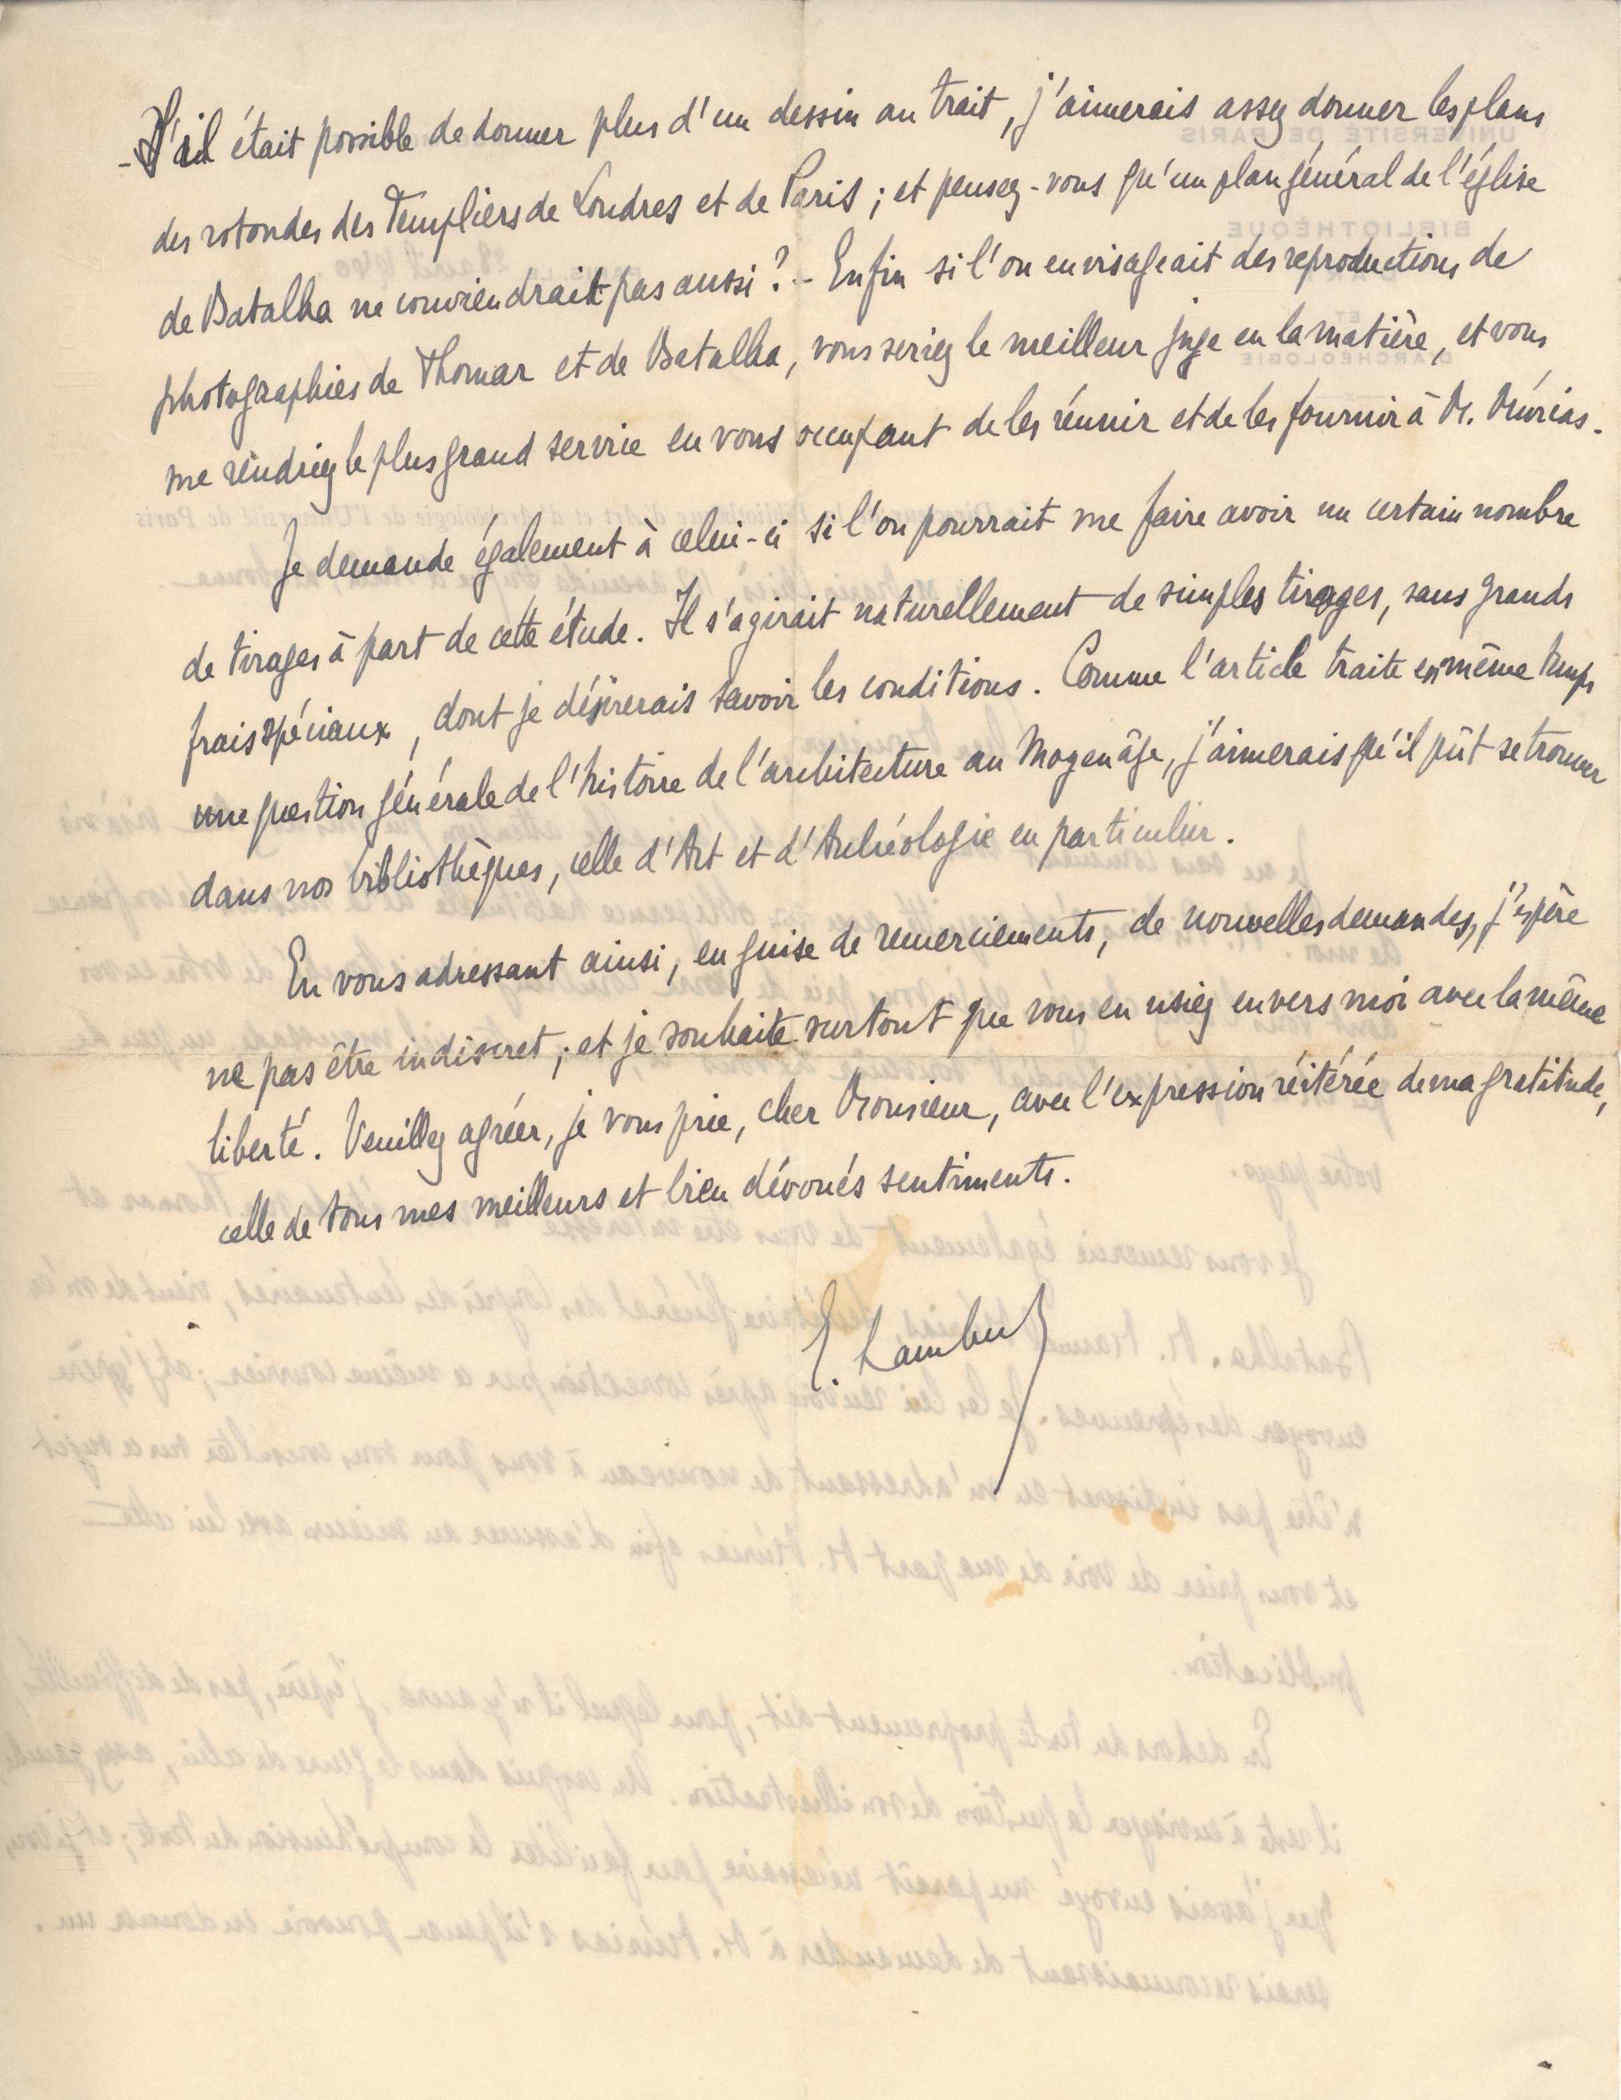 - S'il était possible de donner plus d'un dessin au trait, j'aimerais assez donner les plans
des rotondes des Templiers de Londres et de Paris ; et pensez-vous qu'un plan général de l'église
de Batalha ne conviendrait pas aussi ? - Enfin si l'on envisageait des reproductions de
photographies de Thomar et de Batalha, vous seriez le meilleur juge en la matière, et vous
me rendriez le plus grand service en vous occupant de les réunir et de les fournir à M. Múrias.
Je demande également à celui-ci si l'on pourrait me faire avoir un certain nombre
de tirages à part de cette étude. Il s'agirait naturellement de simples tirages, sans grands
frais spéciaux, dont je désirerais savoir les conditions. Comme l'article traite en même temps
une question générale de l'histoire de l'architecture au Moyen âge, j'aimerais qu'il pût se trouver
dans nos bibliothèques, celle d'Art et d'Archéologie en particulier.
En vous adressant ainsi, en guise de remerciements, de nouvelles demandes, j'espère
ne pas être indiscret ; et je souhaite surtout que vous en usiez envers moi avec la même
liberté. Veuillez agréer, je vous prie, cher Monsieur, avec l'expression réitérée de ma gratitude,
celle de tous mes meilleurs et bien dévoués sentiments.
E. Lambert